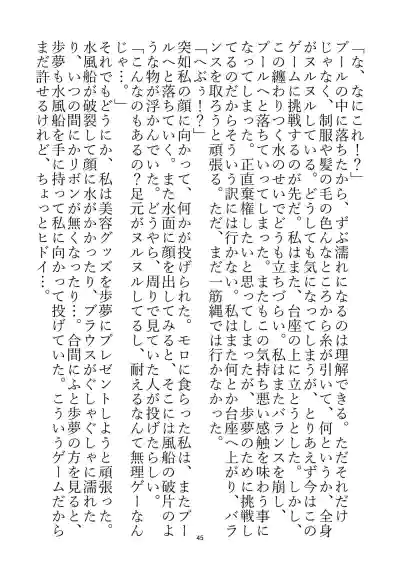 「な、なにこれ！？」
プールの中に落ちたから、ずぶ濡れになるのは理解できる。ただそれだけ
じゃなく、制服や髪の毛の色んなところから糸が引いて、何というか、全身
がヌルヌルしている。どうしても気になってしまうが、とりあえず今はこの
ゲームに挑戦するのが先だ。私はまた、台座の上に立とうとした。しかし、
この纏わりつく水のせいでどうも立ちづらい。私はまたバランスを崩し、
プールへと落ちていってしまった。またもこの気持ち悪い感触を味わう事に
なってしまった。正直棄権したいと思ってしまったが、歩夢のために挑戦し
てるのだからそういう訳には行かない。私はまた何とか台座へ上がり、バラ
ンスを取ろうと頑張る。ただ、まだ一筋縄では行かなかった。
「へぶぅ！？」
突如私の顔に向かって、何かが投げられた。モロに食らった私は、またプー
ルへと落ちていく。また水面に顔を出してみると、そこには風船の破片のよ
うな物が浮かんでいた。どうやら、周りで見ていた人が投げたらしい。
「こんなのもあるの？足元がヌルヌルしてるし、耐えるなんて無理ゲーなん
じゃ…。」
それでもどうにか、私は美容グッズを歩夢にプレゼントしようと頑張った。
水風船が破裂して顔に水がかかったり、ブラウスがぐしゃぐしゃに濡れた
り、いつの間にかリボンが無くなったり…。合間にふと歩夢の方を見ると、
歩夢も水風船を手に持って私に向かって投げていた。こういうゲームだから
まだ許せるけれど、ちょっとヒドイ…。
45